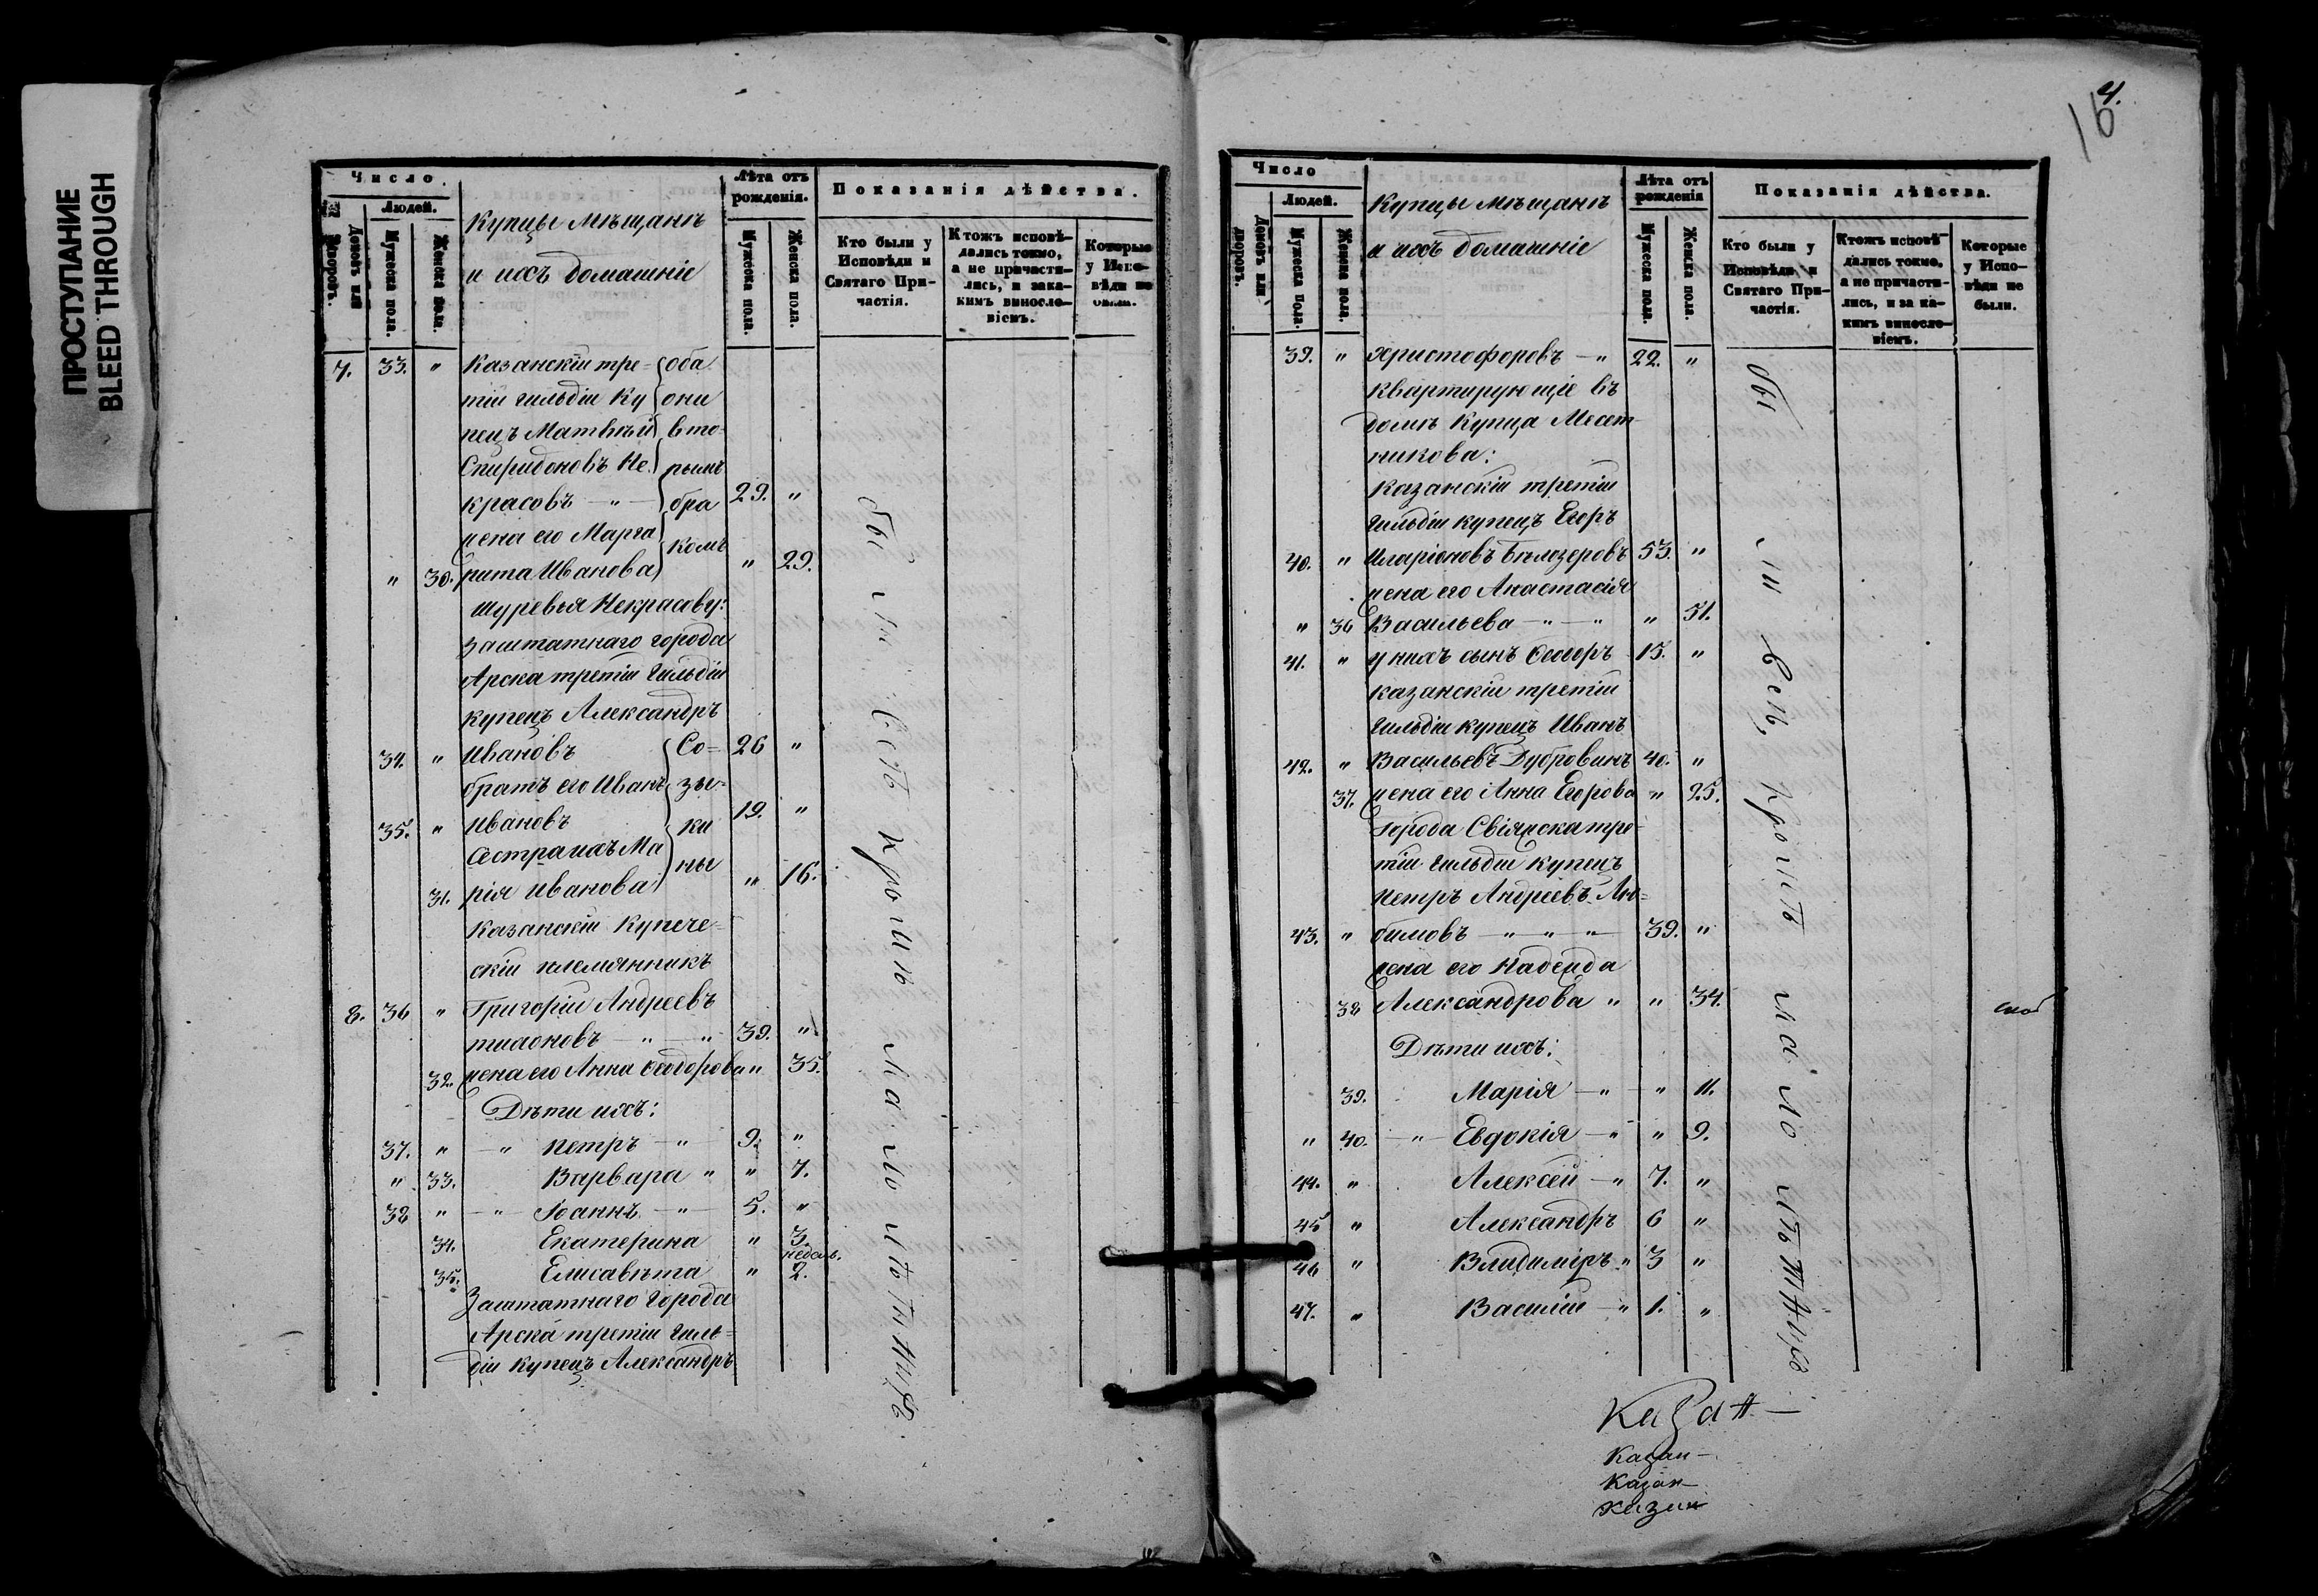 ПРОСТУПАНИЕ
BLEED THROUGH
Число.
Людей.
Домовъ или Дворовъ.
Мужеска пола.
Женска пола.
Купцы Мѣщанѣ
и ихъ домашніе
Лѣта отъ
рожденія.
Мужеска пола.
Женска пола.
Показанія дѣйства.
Кто были у
Исповѣди и
Святаго При-
частія.
Ктожъ исповѣ-
дались токмо,
а не причасти-
лись, и за ка-
кимъ виносло-
віемъ.
Которые
у Испо-
вѣди не
были.
7. 33. " Казанскій тре- оба
тій гильдіи Ку они
пецъ Матвѣй вто-
Спиридоновъ Не- рымъ
красовъ — " — бра 29. "
жена его Марга комъ
" 30. рита Иванова " 29.
шурья Некрасову:
Заштатнаго города
Арска третій гильдіи
купецъ Александръ
34. " Ивановъ Со= 26 "
братъ его Иванъ зы=
35. " Ивановъ ки 19. "
Сестра ихъ Ма
31. рія Иванова ны " 16.
Казанскій Купече=
скій племянникъ
8. 36 " Григорій Андреевъ
Тихоновъ — " — " 39. "
32. жена его Анна Ѳеодорова " 35.
Дѣти ихъ:
37. " — " Петръ — " 9. "
" 33. Варвара " " 7.
38 " — " Іоаннъ — " 5. "
34. Екатерина " 3.
недель.
35. Елисавѣта " 2.
Заштатнаго города
Арска третій гиль=
діи купецъ Александръ
бы ли всѣ кромѣ малолѣтныхъ
4.
16
Число
Людей.
Домовъ или дворовъ.
Мужеска пола.
Женска пола.
Купцы мѣщанѣ
и ихъ домашніе
Лѣта отъ
рожденія
Мужеска пола.
Женска пола.
Показанія дѣйства.
Кто были у
Исповѣди и
Святаго При-
частія.
Ктожъ исповѣ-
дались токмо,
а не причасти-
лись, и за ка-
кимъ виносло-
віемъ.
Которые
у Испо-
вѣди не
были.
39. " Христофоровъ — " 22. "
Квартирующіе въ
домѣ Купца Месет-
никова:
Казанскій третій
гильдіи купецъ Егоръ
40. " Иларіоновъ Бѣлозеровъ 53. "
жена его Анастасія
" 36 Васильева — " — " " 51.
41. " у нихъ сынъ Ѳеодоръ 15. "
Казанскій третій
гильдіи купецъ Иванъ
42. " Васильевъ Дубровинъ 40. "
37. жена его Анна Егорова " 25.
Города Свіяжска тре-
тій гильдіи купецъ
Петръ Андреевъ Лю=
43. " бимовъ — " — " — " 39. "
жена его Надежда
38 Александрова " " 34.
Дѣти ихъ:
39. Марія — " — " 11.
" 40. — " — Евдокія — " " 9.
44. " Алексѣй — " 7. "
45 " Александръ 6 "
46 " Владиміръ " 3 "
47. " Василій — " 1. "
бы ли всѣ, кромѣ малолѣтныхъ
Казан—
Казан—
Казан—
Казан